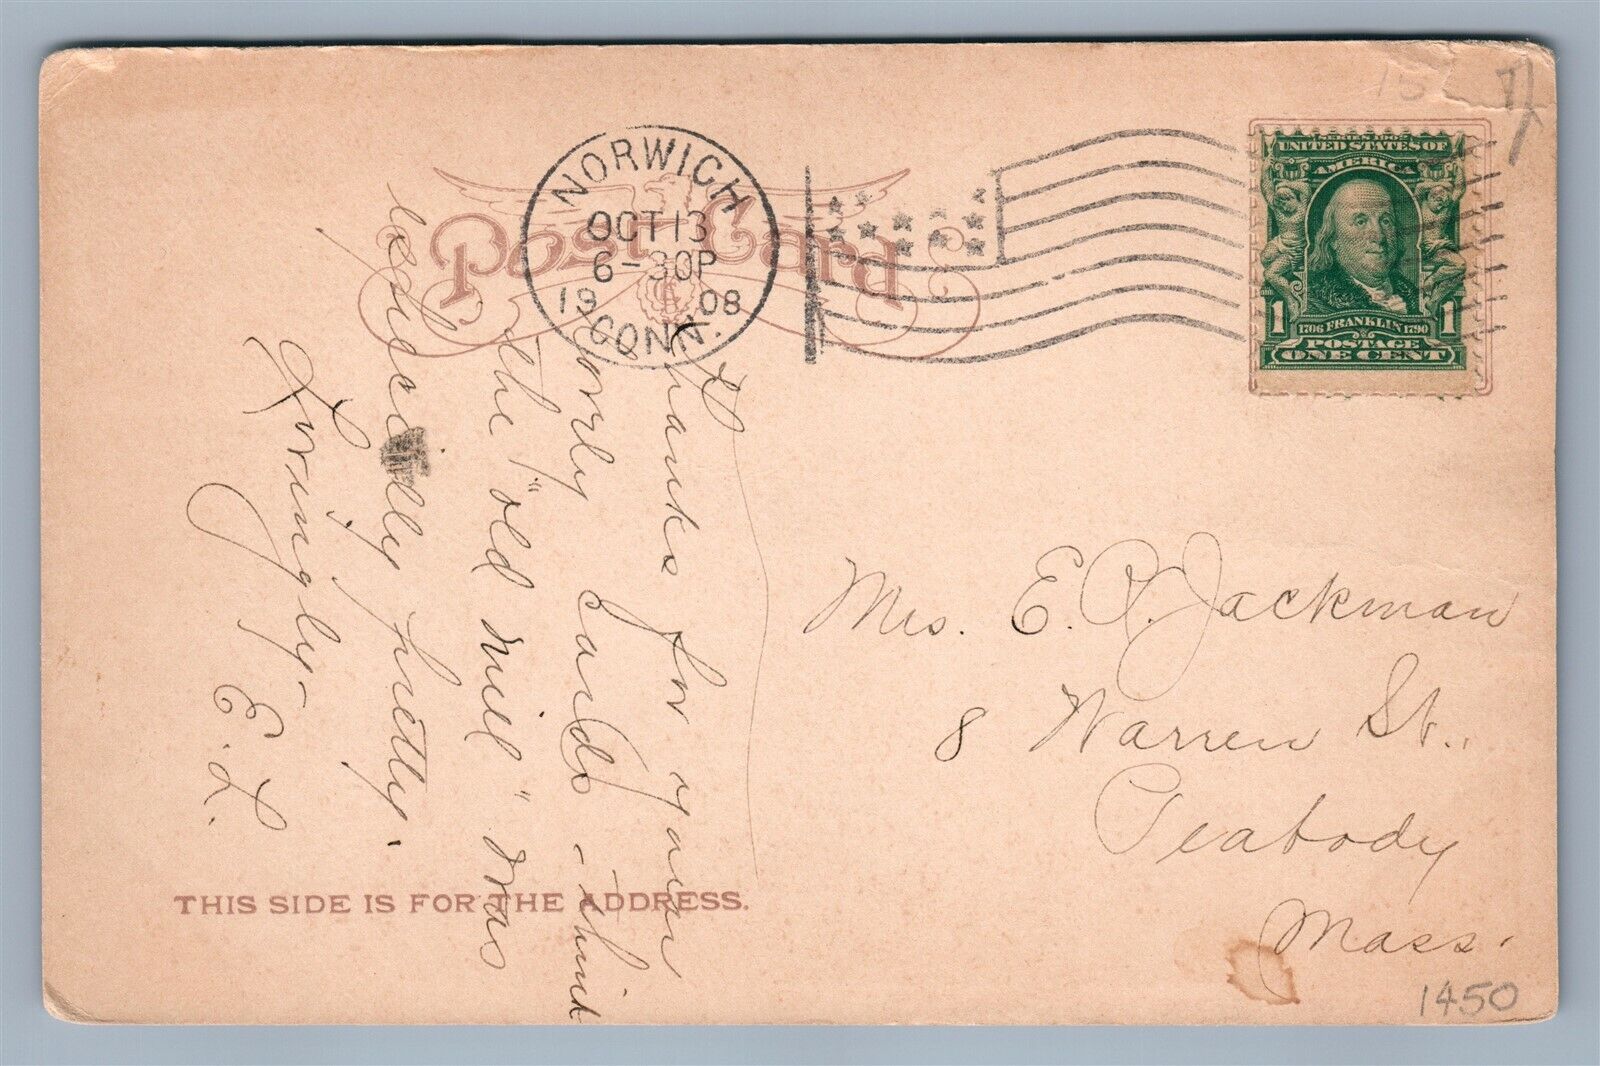 Post Card
NORWICH
OCT 13
6-30P
1908
CONN.
SERIES 1902
UNITED STATES OF
AMERICA
1 1706 FRANKLIN 1790 1
POSTAGE
ONE CENT
Thanks for your
lovely cards - think
the "old mill" was
especially pretty.
Lovingly-
E. L.
Mrs. E. R. Jackman
8 Warren St.,
Peabody
Mass.
THIS SIDE IS FOR THE ADDRESS.
1450